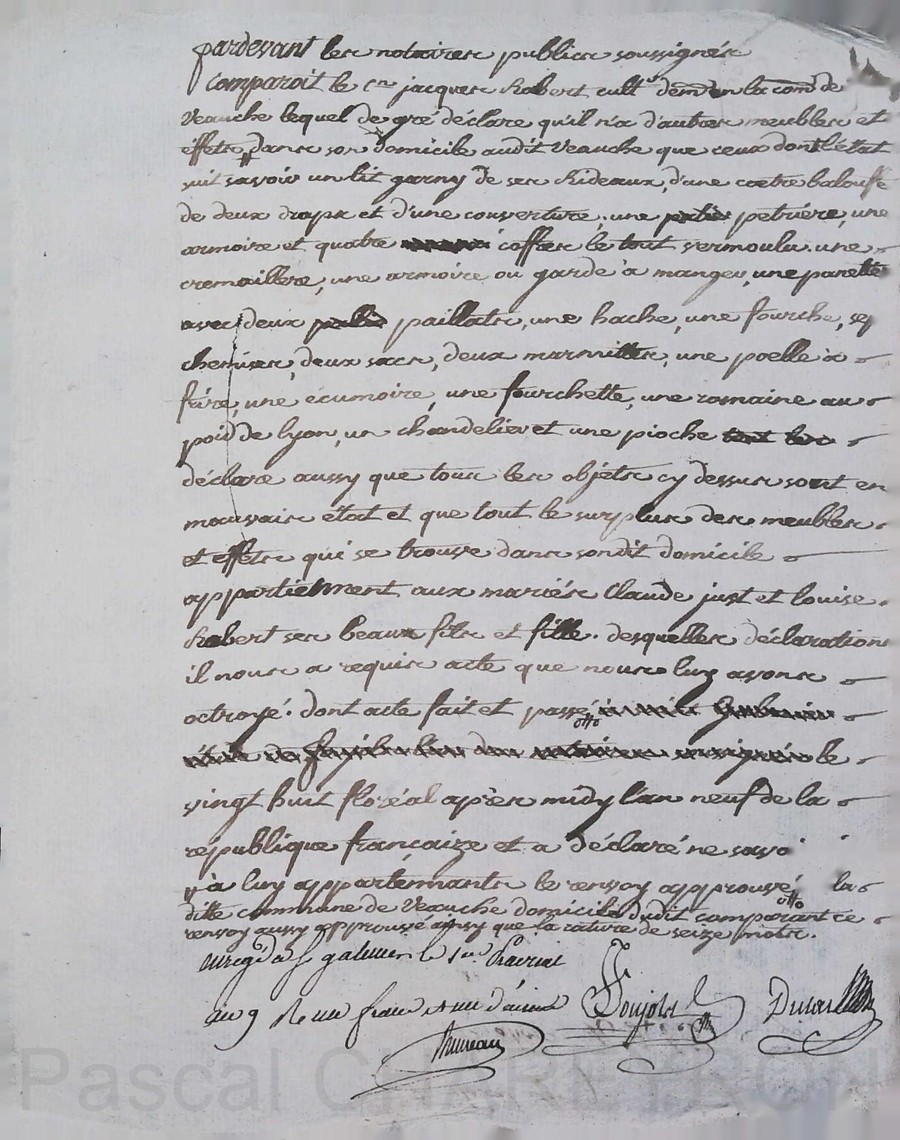 pardevant les notaires publics soussignés
Comparoit le cn jacques Robert cultr demt en la com de
Veauche lequel de gré déclare qu'il n'a d'autres meubles et
effets dans son domicile audit Veauche que ceux dont l'état
suit savoir un lit garny de ses Rideaux, d'une coetre balouffe
de deux draps et d'une couverture, une petriere, une
armoire et quatre coffres le tout vermoulu. une
cremaillere, une armoire ou garde à manger, une panetté
avec deux paillats, une hache, une fourche, sep
chemises, deux sacs, deux marmittes, une poelle à
frire, une écumoire, une fourchette, une romaine au
poid de lyon, un chandelier et une pioche
déclare aussy que tous les objets cy dessus sont en
mauvais état et que tout le surplus des meubles
et effets qui se trouve dans sondit domicile
appartiennent aux mariés Claude just et louise
Robert ses beaux fils et fille. desquelles déclarations
il nous a requis acte que nous luy avons
octroyé. dont acte fait et passé à
le
vingt huit floréal après midy l'an neuf de la
république françaize et a déclaré ne savo
# à luy appartennants le renvoy approuvé, la
ditte commune de Veauche domicile dudit comparant ce
renvoy aussy approuvé ainsy que la rature de seize mots.
enregd a S galmier le 1er Prairial
an 9 R un franc et un décime
Pascal CHAREYRON